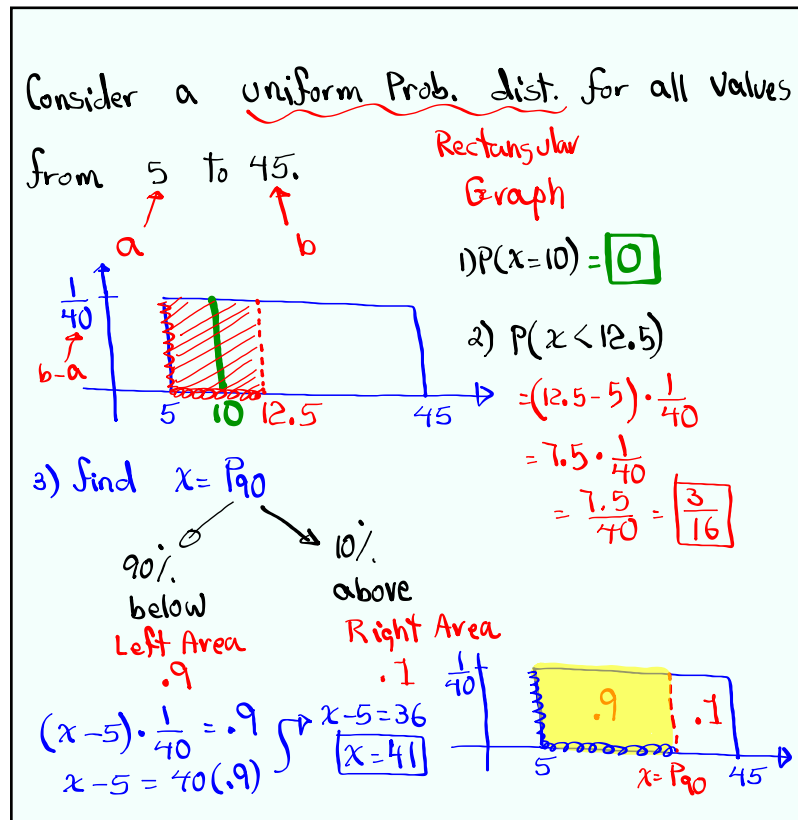 Consider a uniform Prob. dist. for all values
from 5 to 45.
a b
Rectangular
Graph
1) P(x=10) = 0
1/40
b-a
5 10 12.5 45
2) P(x < 12.5)
= (12.5 - 5) · 1/40
= 7.5 · 1/40
= 7.5/40 = 3/16
3) find x = P90
90% below
10% above
Left Area
.9
Right Area
.1
(x-5) · 1/40 = .9
x-5 = 40(.9)
x-5 = 36
x = 41
1/40
.9 .1
5 x = P90 45